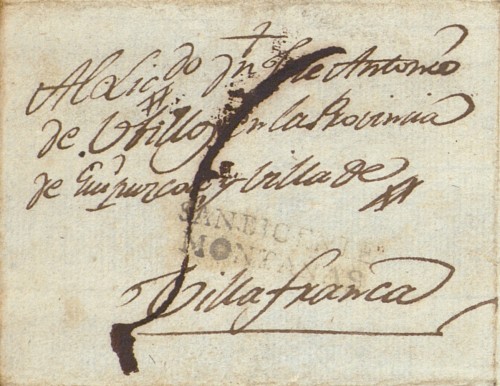 Al Lic.do Dn Jse Antonio
de Utillo, en la Provincia
de Guipuzcoa y Villa de
SAN BICENTE
MONTAÑAS
Villafranca